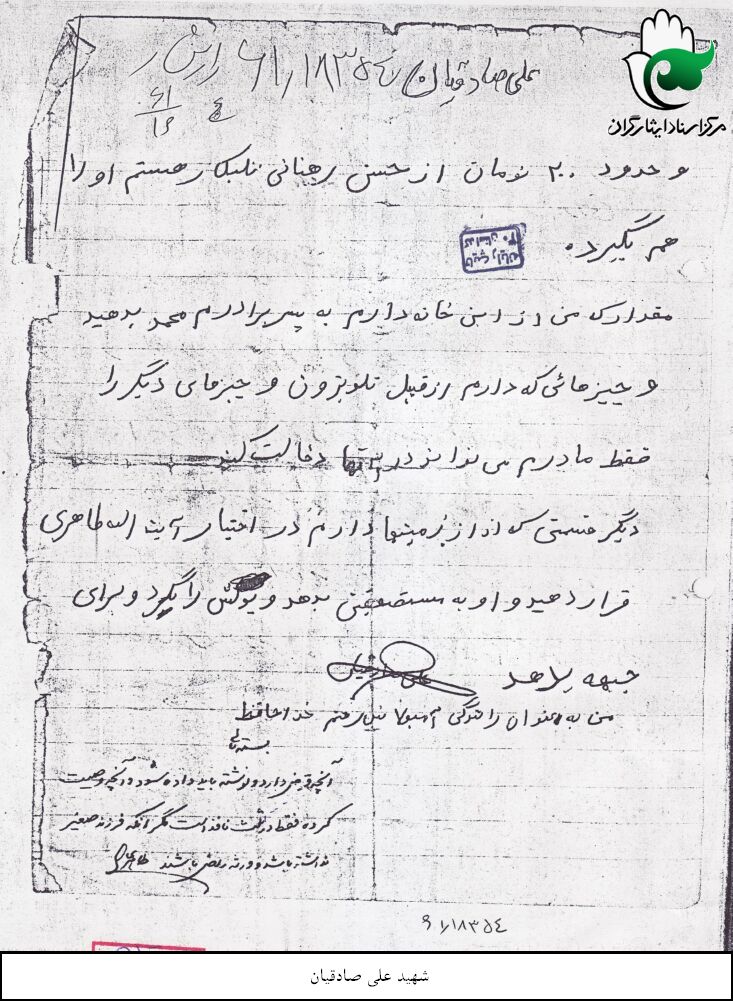 مرکز اسناد ایثارگران
علی صادقیان ۶۱/۱۸۳۵۴
۶۱
۱۶
و حدود ۲۰۰ تومان از حسن رهنانی طلبکار هستم او را
هم بگیرد.
مقدار که من از این خانه دارم به پسر برادرم محمد بدهید
و چیزهائی که دارم از قبیل تلویزون و چیزهای دیگر را
فقط مادرم می تواند در اینها دخالت کند
دیگر قسمتی که از زمینها دارم در اختیار آیت الله طاهری
قرار دهید و او به مستضعفین بدهد و پولش را بگیرد و برای
جبهه بدهد
من به عنوان رانندگی آمبولانس رفتم خداحافظ
بسمه تعالی
آنچه قرض دارد و نوشته باید داده شود و آنچه وصیت
کرده فقط در ثلث نافذ است مگر آنکه فرزند صغیر
نداشته باشد و ورثه راضی باشند طاهری
۶۱/۱۸۳۵۴
شهید علی صادقیان